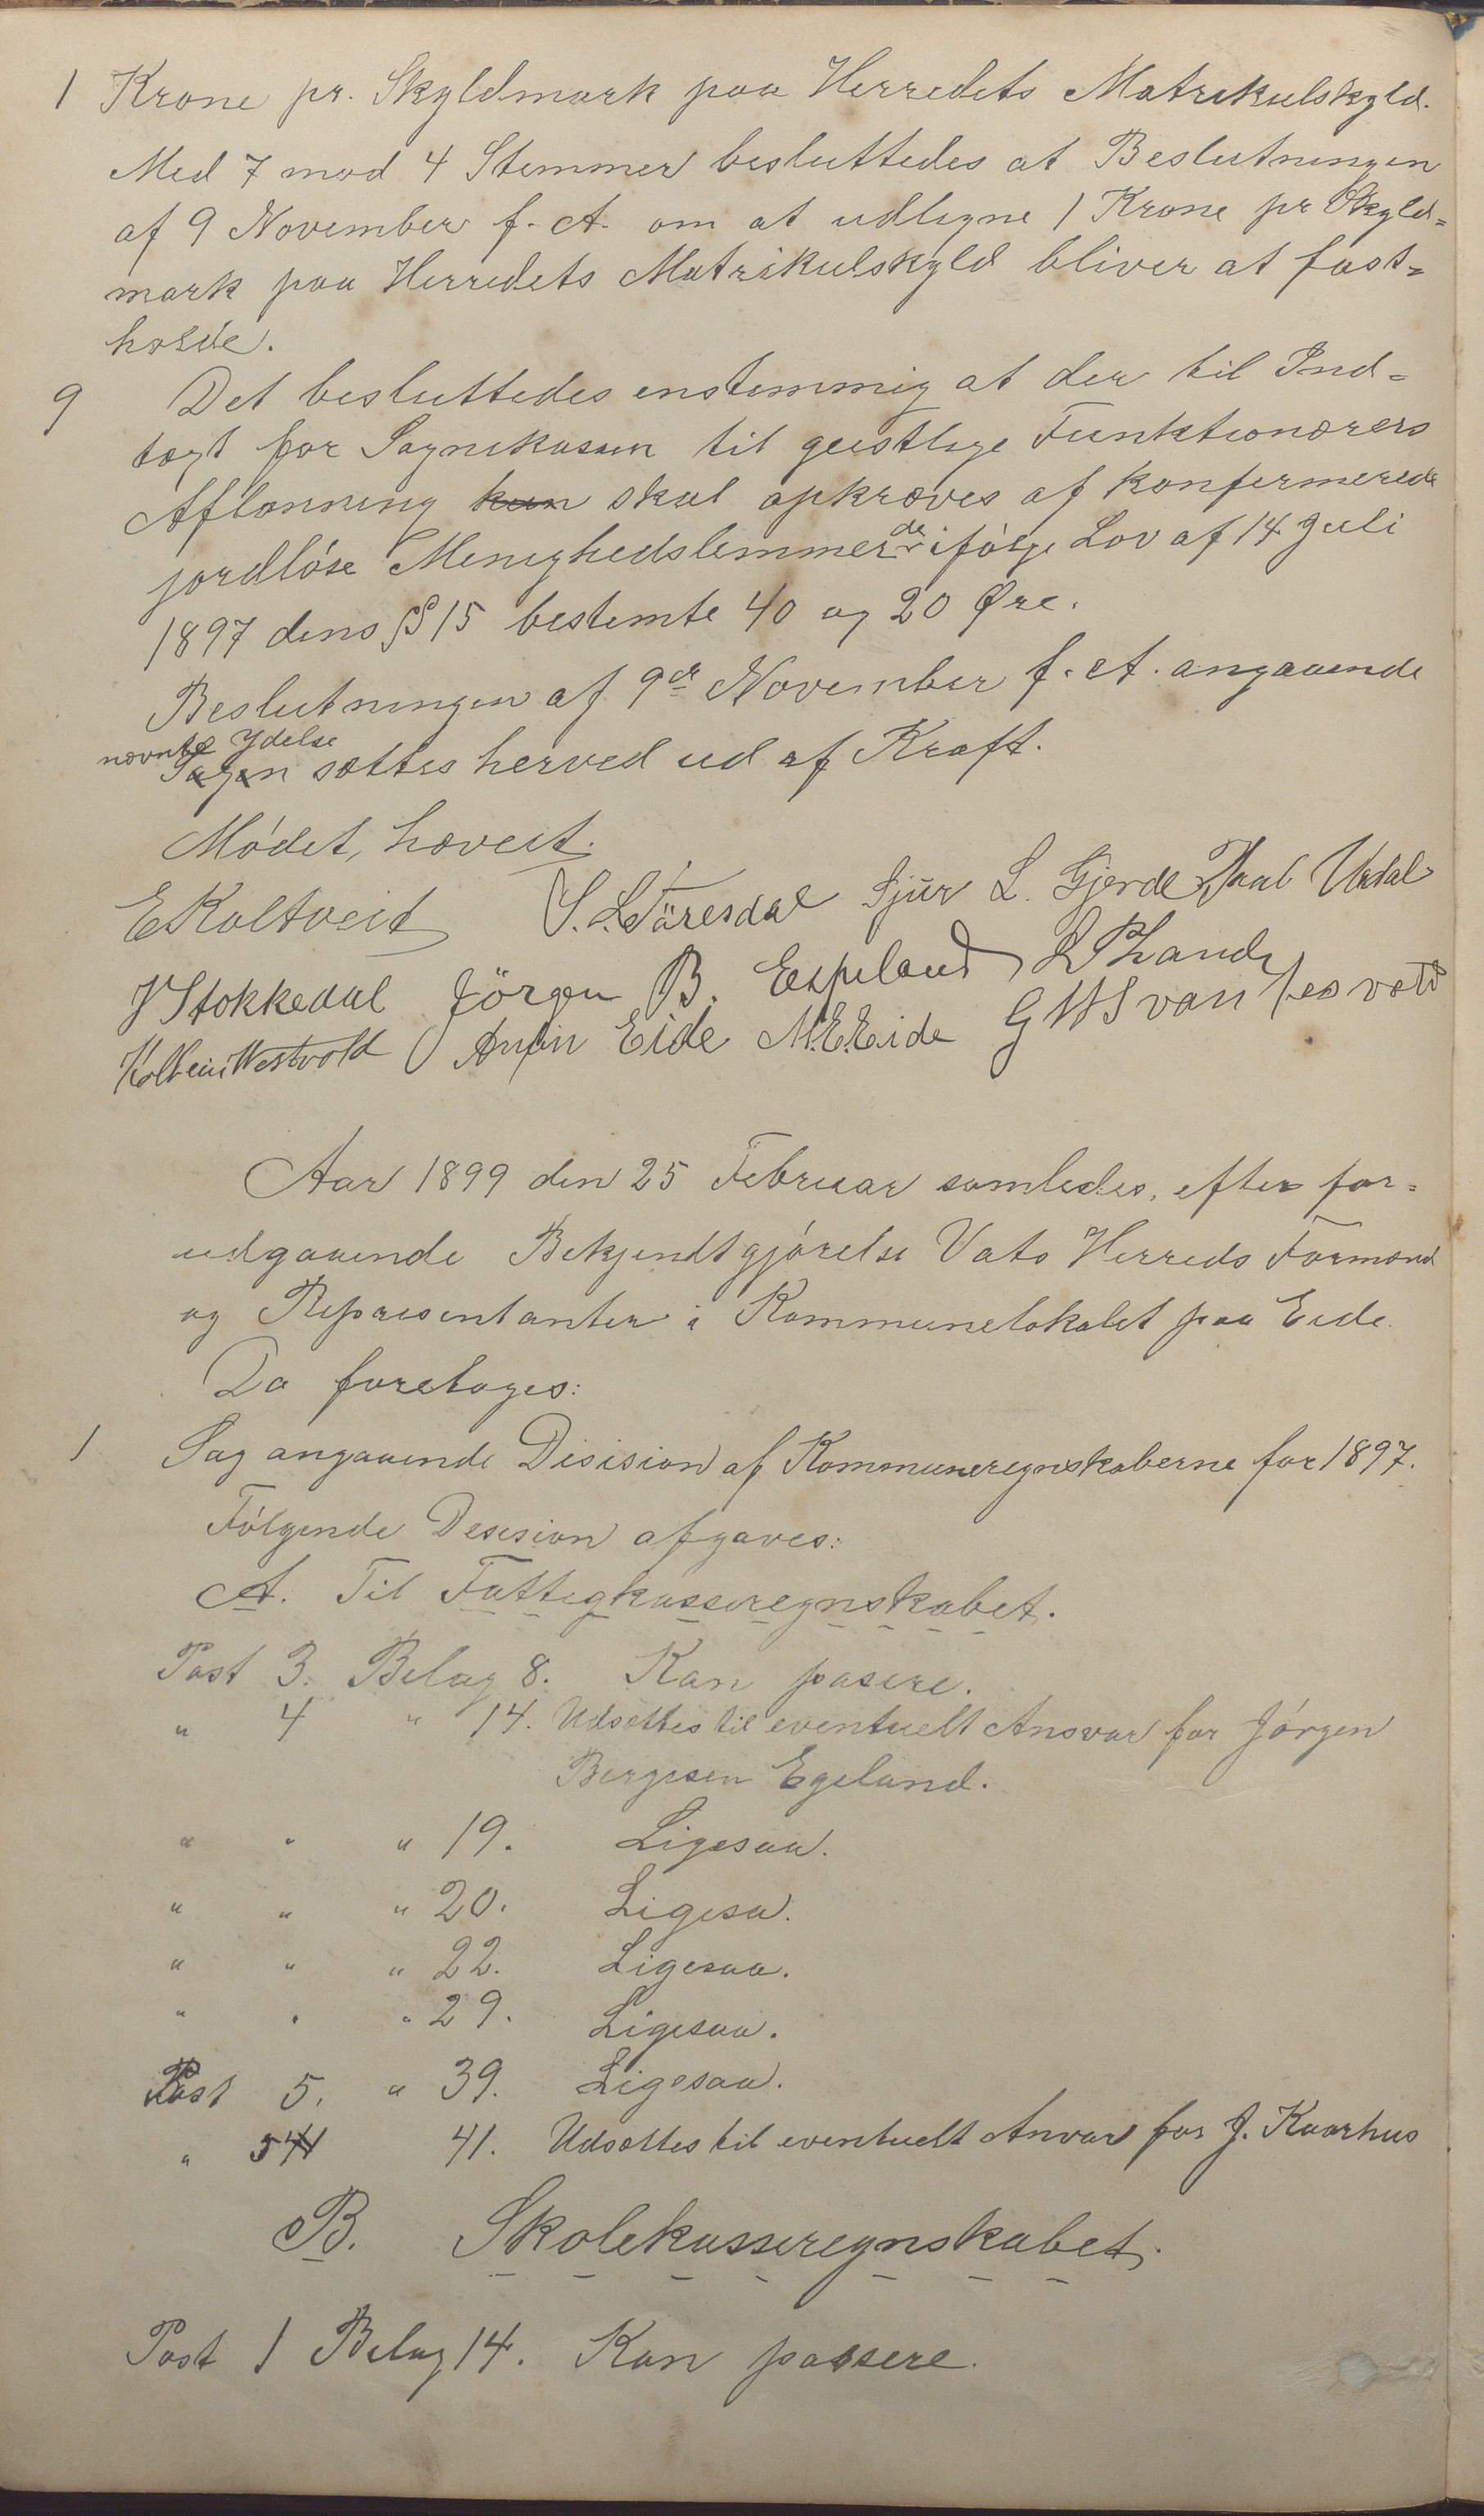 1 Krone pr. Skyldmark paa Herredets Matrikulskyld.
Med 7 mod 4 Stemmer besluttedes at Beslutningen
af 9 November f. A. om at udligne 1 Krone pr Skyld=
mark paa Herredets Matrikulskyld bliver at fast=
holde.
9 Det besluttedes enstemmig at der til Ind=
tægt for Sognekassen til geistlige Funktionærers
Aflønning kun skal opkræves af konfirmerede
jordløse Menighedslemmer de ifølge Lov af 14 Juli
1897 dens § 15 bestemte 40 og 20 Øre.
Beslutningen af 9de November f. A. angaaende
nævnte Ydelse
Sagen sættes herved ud af Kraft.
Mødet hævet.
E Koltveit S. L. Färesdal Sjur L. Gjerde Paul Urdal
J Stokkedal Jörgen B. Espeland L P Lande
Kolbein Westvold Amin Eide M.E.Eide G W Svan
Aar 1899 den 25 Februar samledes, efter for=
udgaaende Bekjendtgjørelse Vats Herreds Formænd
og Repræsentanter i Kommunelokalet paa Eide.
Da foretoges:
1 Sag angaaende Disision af Kommuneregnskaberne for 1897.
Følgende Desision afgaves:
A. Til Fattigkasseregnskabet.
Post 3. Belag 8. Kan pasere.
" 4 " 14. Udsættes til eventuelt Ansvar for Jørgen
Bergesen Egeland.
" " " 19. Ligesaa.
" " " 20. Ligesa.
" " " 22. Ligesaa.
" " " 29. Ligesaa.
Post 5. " 39. Ligesaa.
" 5 41. Udsættes til eventuelt Anvar for J. Kaarhus
B. Skolekasseregnskabet.
Post 1 Belag 14. Kan passere.